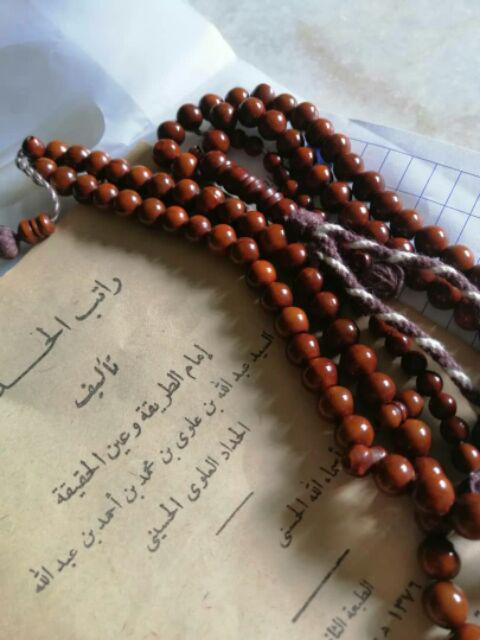 راتب الحد
تأليف
إمام الطريقة وعين الحقيقة
السيد عبد الله بن علوى بن محمد بن أحمد بن عبد الله
الحداد العلوى الحسينى
أسماء الله الحسنى
الطبعة الثان
١٣٧٦ هـ